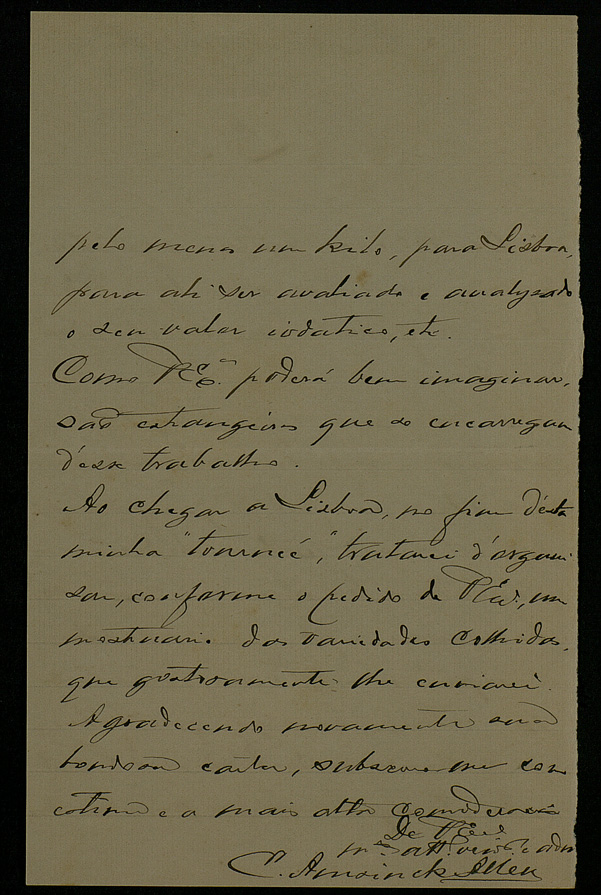 pelo menos um kilo, para Lisboa,
para ahi ser avaliado e analysado
o seu valor iodatico, etc.
Como V. Ex.ª poderá bem imaginar,
são estrangeiros que se encarregam
d'esse trabalho.
Ao chegar a Lisboa, no fim d'ésta
minha "tournée", tratarei d'organi
sar, conforme o pedido de V. Ex.ª, um
mostruario das variedades colhidas,
que gostosamente lhe enviarei.
Agradecendo novamente sua
bondosa carta, subscrevo-me com
estima e a mais alta consideração
De V. Ex.ª
m.to att.o ven.or e
C. Amsinck Allen